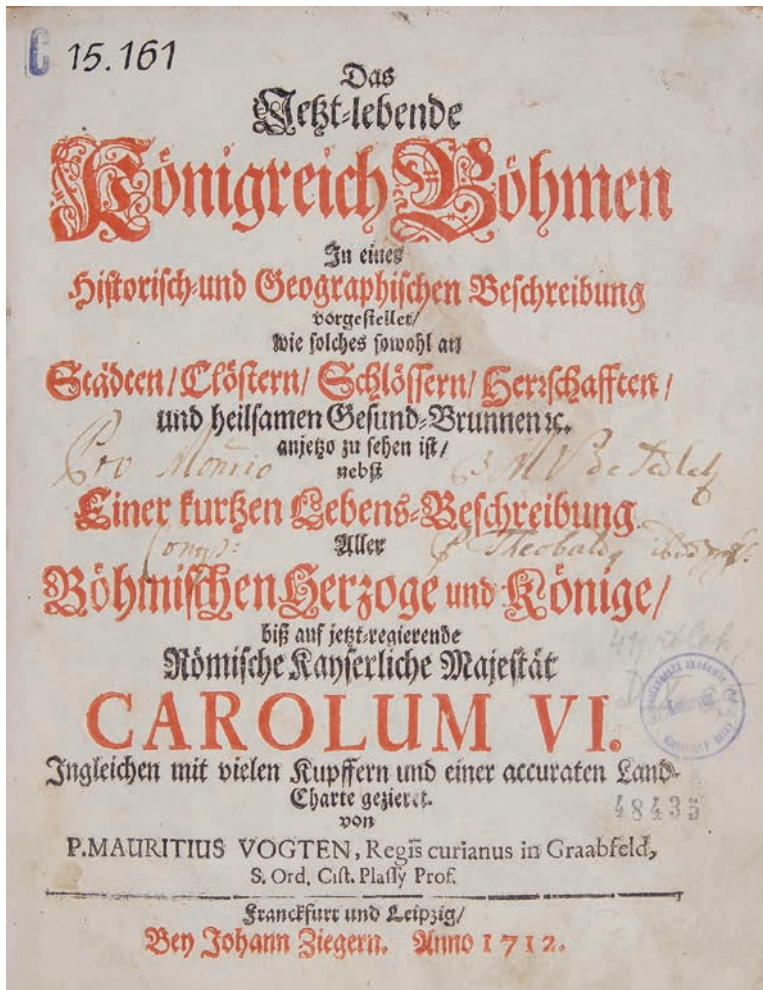 C 15.161
Das
Jetzt-lebende
Königreich Böhmen
In einer
Historisch-und Geographischen Beschreibung
vorgestellet/
wie solches sowohl an
Städten/Clöstern/Schlössern/Herrschafften/
und heilsamen Gesund-Brunnen ꝛc.
anjetzo zu sehen ist/
nebst
Einer kurtzen Lebens-Beschreibung
Aller
Böhmischen Herzoge und Könige/
biß auf jetzt-regierende
Römische Kayserliche Majestät
CAROLUM VI.
Ingleichen mit vielen Kupffern und einer accuraten Land-
Charte gezieret.
von
P.MAURITIUS VOGTEN, Regis curianus in Graabfeld,
S. Ord. Cist. Plassy Prof.
48435
Franckfurt und Leipzig/
Bey Johann Ziegern. Anno 1712.